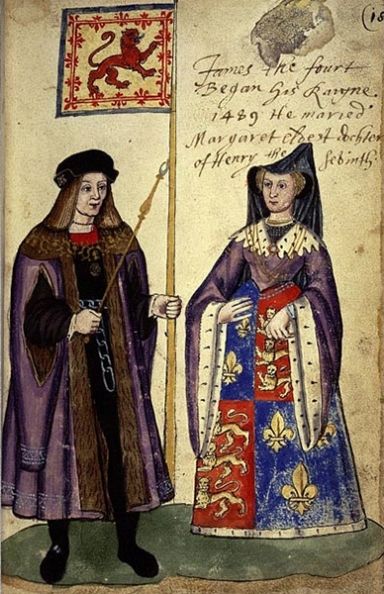 (18
James the fourt
Began his Rayne
1489 He maried
Margaret Eldest dochter
of Henry the sebinth